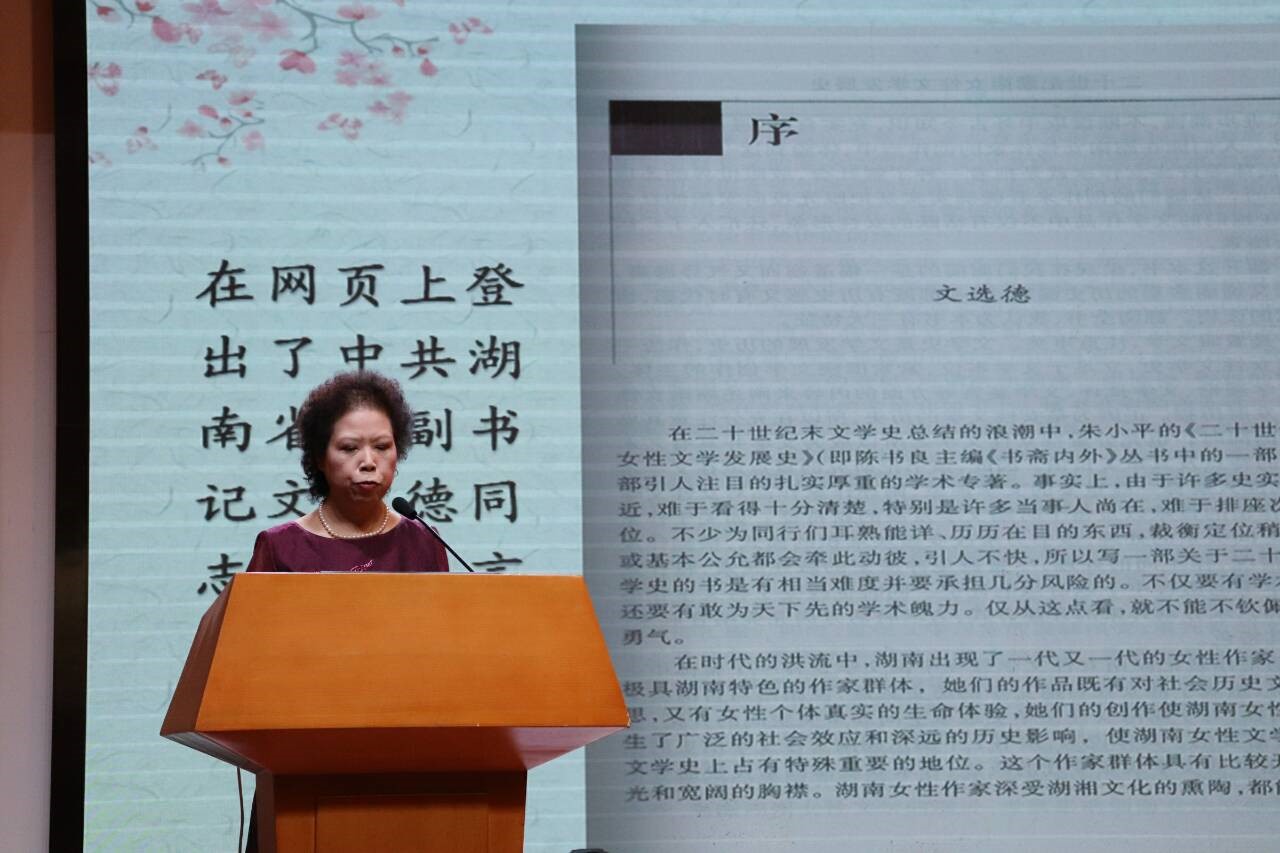 在网页上登
出了中共湖
南省 副书
记文 德同
志 言
序
文选德
在二十世纪末文学史总结的浪潮中,朱小平的《二十世
女性文学发展史》(即陈书良主编《书斋内外》丛书中的一部
部引人注目的扎实厚重的学术专著。事实上,由于许多史实
近,难于看得十分清楚,特别是许多当事人尚在,难于排座次
位。不少为同行们耳熟能详、历历在目的东西,裁衡定位稍
或基本公允都会牵此动彼,引人不快,所以写一部关于二十
学史的书是有相当难度并要承担几分风险的。不仅要有学
还要有敢为天下先的学术魄力。仅从这点看,就不能不钦佩
勇气。
在时代的洪流中,湖南出现了一代又一代的女性作家
极具湖南特色的作家群体，她们的作品既有对社会历史文
思,又有女性个体真实的生命体验,她们的创作使湖南女性
生了广泛的社会效应和深远的历史影响，使湖南女性文学
文学史上占有特殊重要的地位。这个作家群体具有比较开
光和宽阔的胸襟。湖南女性作家深受湖湘文化的熏陶,都